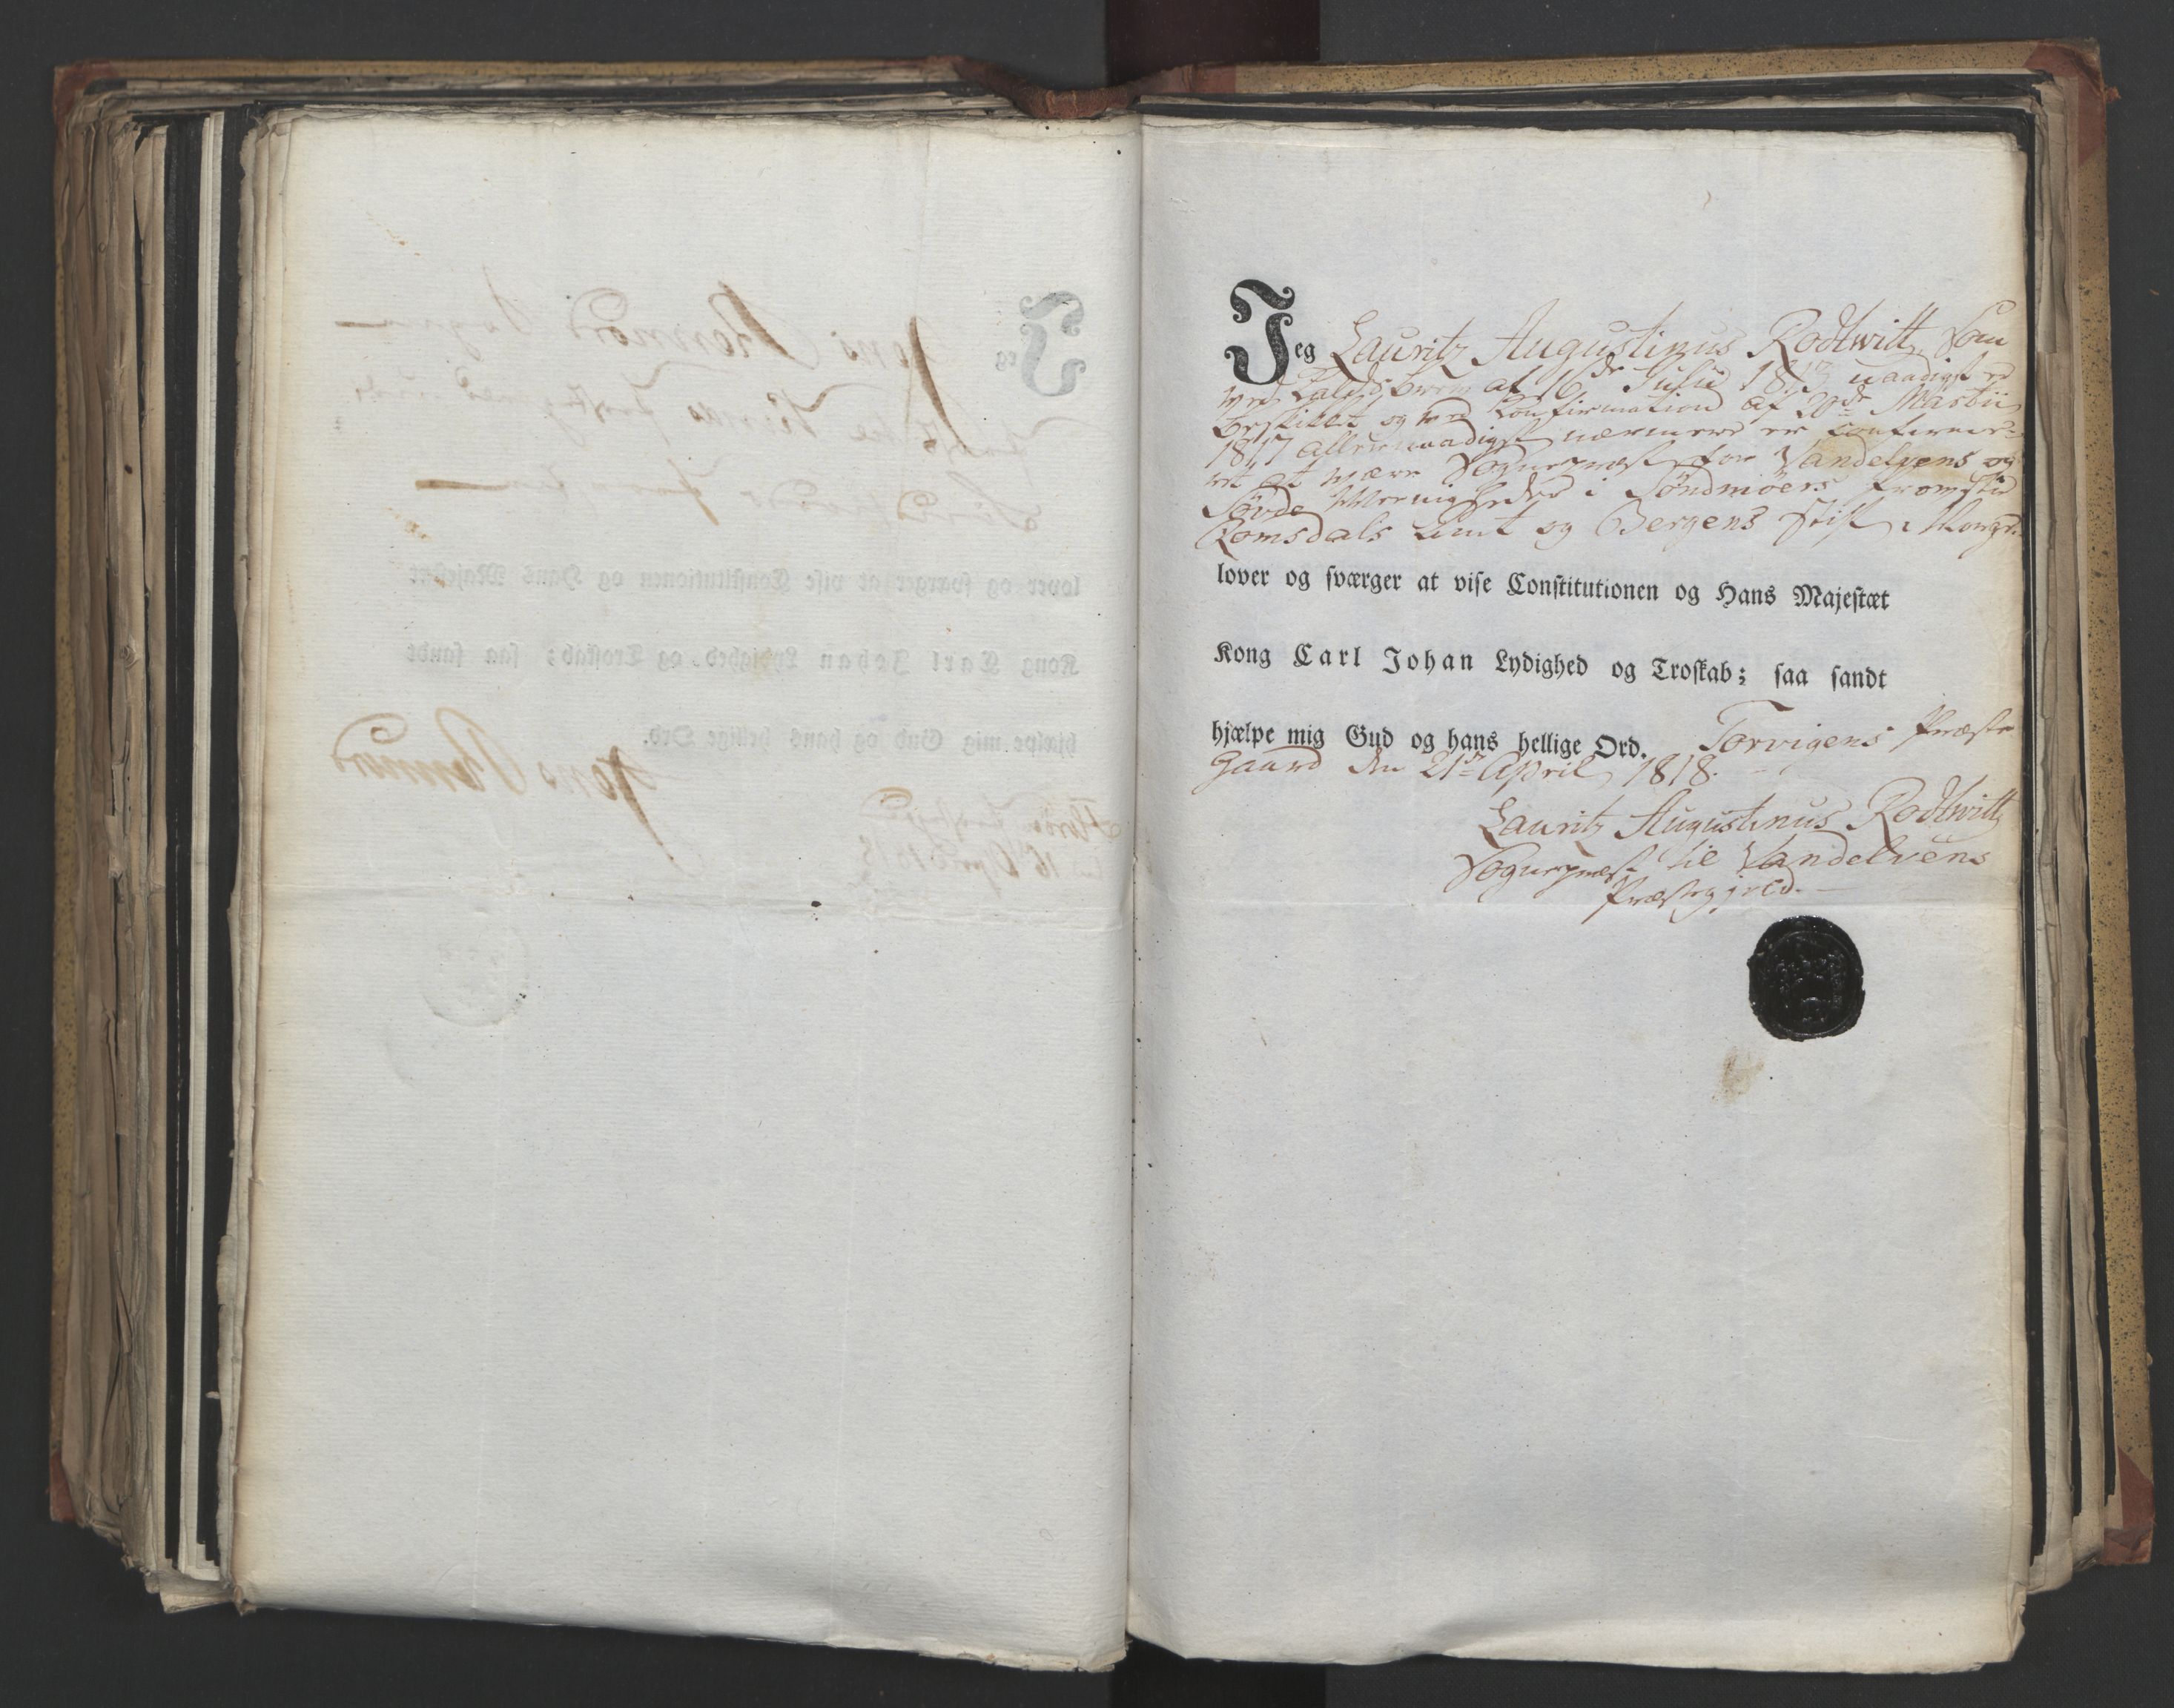 Jeg Lauritz Augustinus Rodtwitt, som
ved Kaldsbrev af 16de Julii 1813 naadigst er
beskikket og ved Confirmation af 20de Martii
1817 allernaadigst nærmere er confirme-
ret at være Sognepræst for Vandelvens og
Søvde Menigheder i Søndmøers
Romsdals Amt og Bergens Stift i Norge
lover og sværger at vise Constitutionen og Hans Majestæt
Kong Carl Johan Lydighed og Troskab; saa sandt
hjælpe mig Gud og hans hellige Ord. Torvigens Præste
Gaard den 21de April 1818.
Lauritz Augustinus Rodtwitt
Sognepræst til Vandelvens
Præstegjeld.